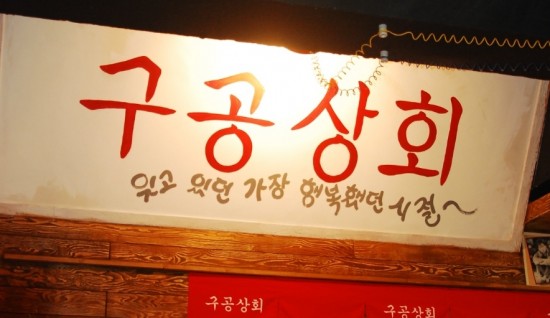 구공상회
잊고 있던 가장 행복했던 시절~
구공상회 구공상회